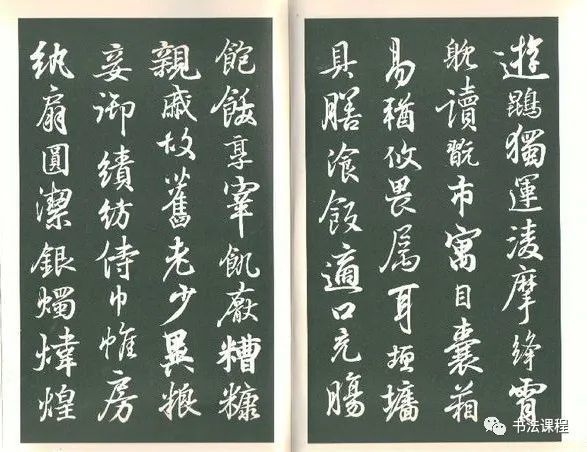 遊鵾獨運凌摩絳霄
耽讀翫市寓目囊箱
易輶攸畏属耳垣墻
具膳飡飯適口充腸
飽飫享宰飢厭糟糠
親戚故舊老少異粮
妾御績紡侍巾帷房
紈扇圓潔銀燭煒煌
书法课程